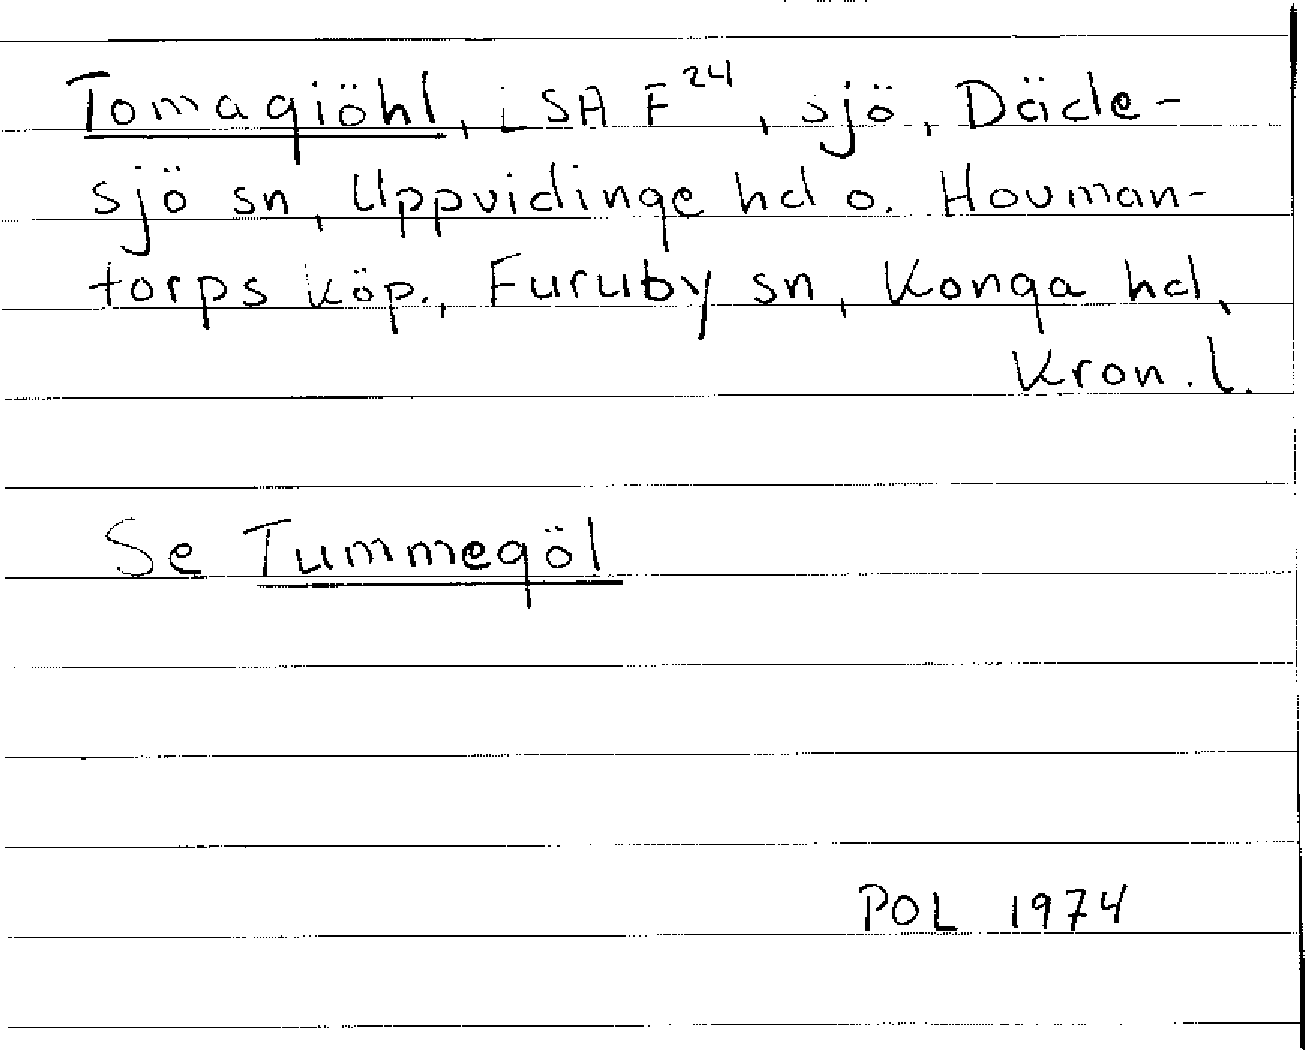 Tomagiöhl, LSA F²⁴, sjö, Däde-
sjö sn, Uppvidinge hd o. Hovman-
torps köp., Furuby sn, Konga hd,
Kron. l.
Se Tummegöl
POL 1974